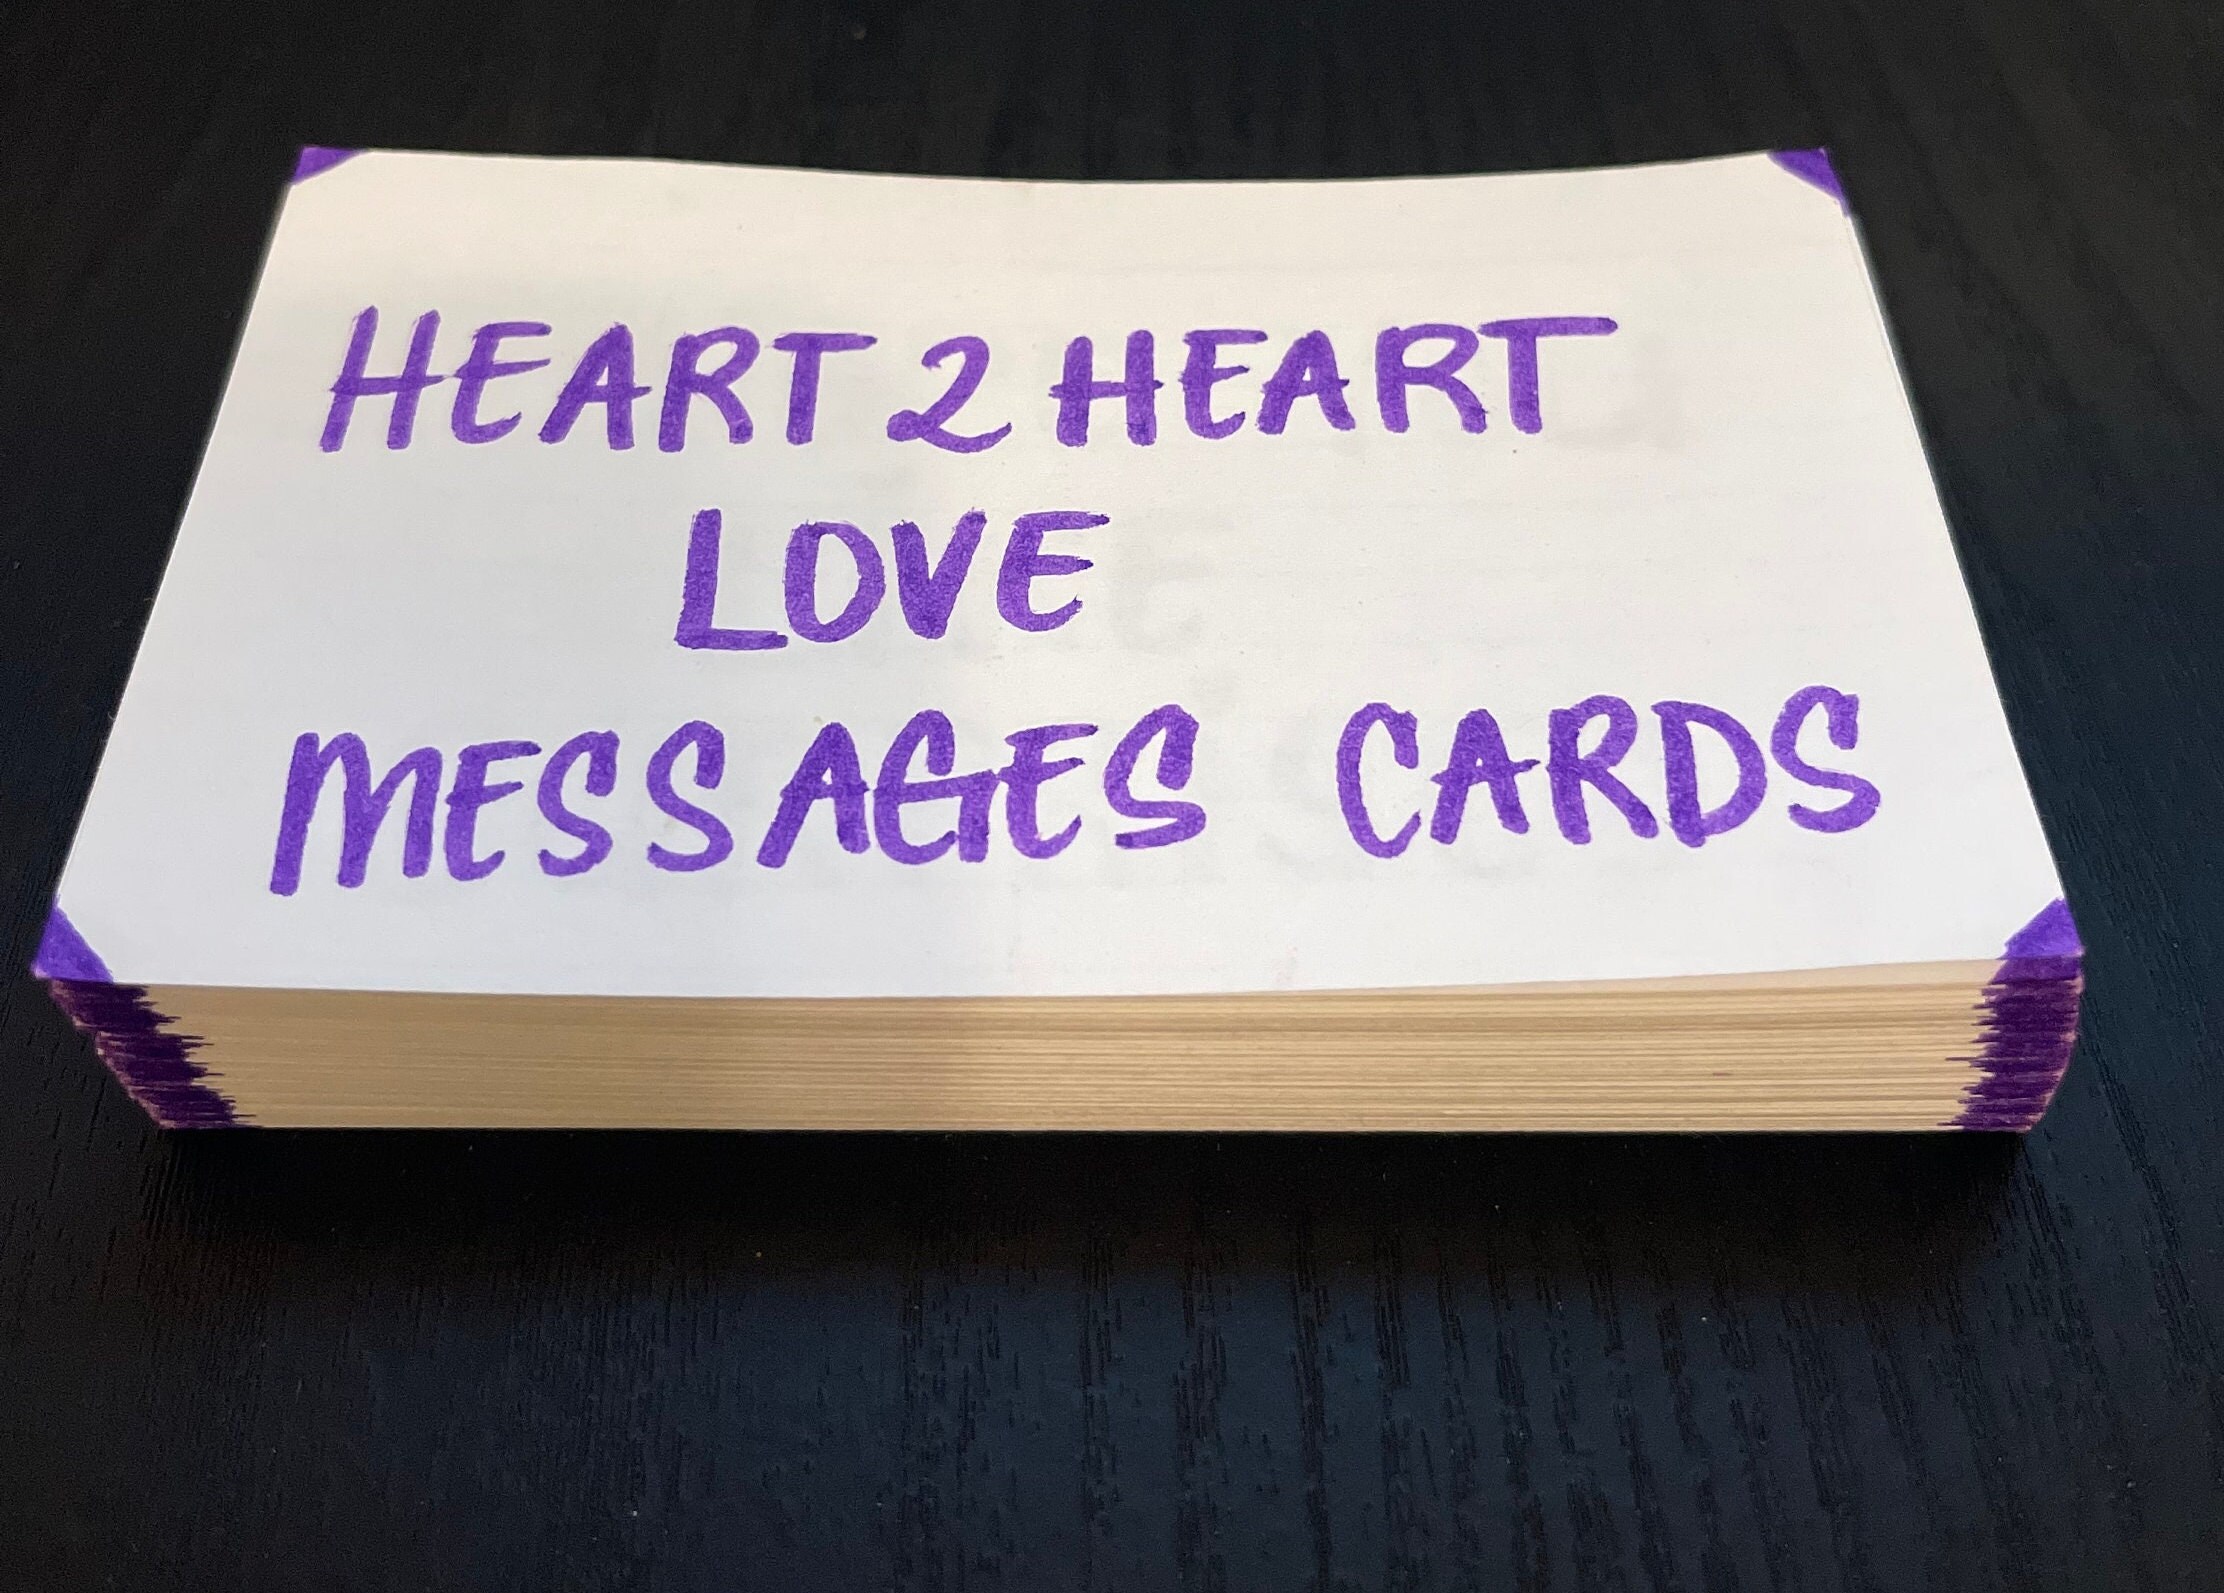 HEART 2 HEART
LOVE
MESSAGES CARDS